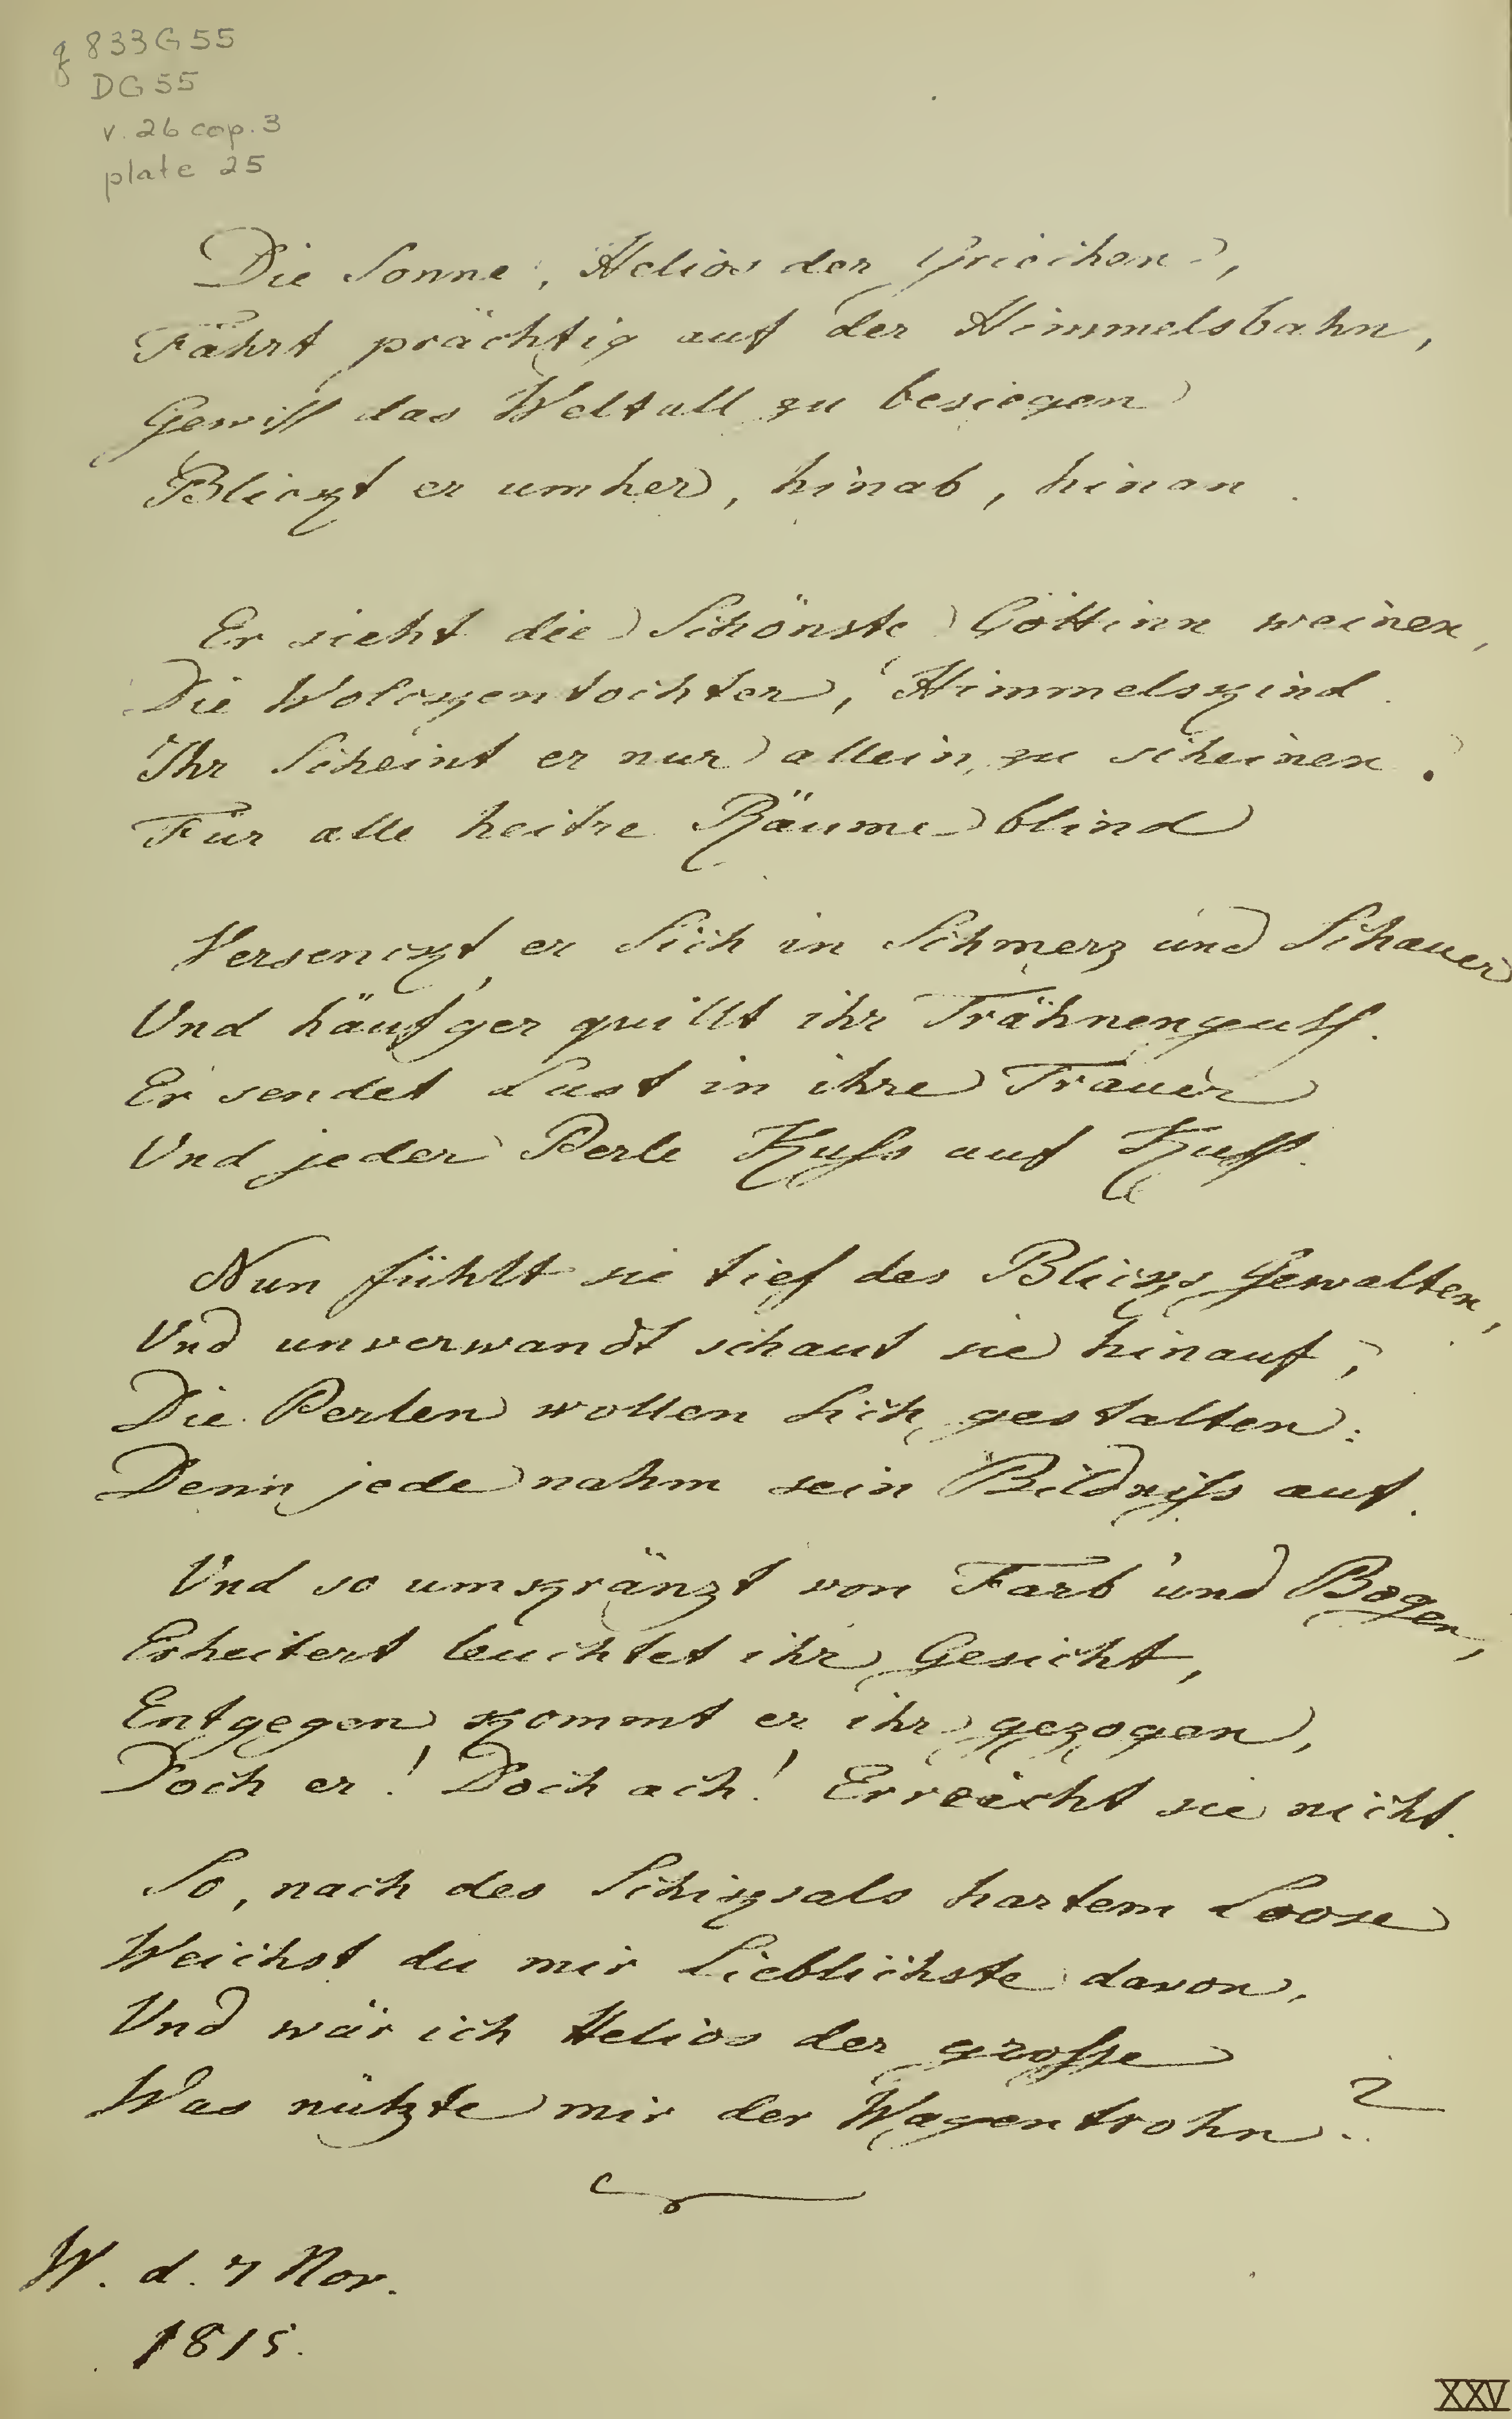 q 833G55
DG55
v. 26 cop. 3
plate 25
Die Sonne, Helios der Griechen,
Fährt prächtig auf der Himmelsbahn,
Gewiss das Weltall zu besiegen
Blickt er umher, hinab, hinan.
Er sieht die Schönste Göttinn weinen,
Die Wolckentochter, Himmelskind.
Ihr Scheint er nur allein zu scheinen.
Für alle heitre Räume blind
Versenckt er Sich in Schmerz und Schauer
Und häuf'ger quillt ihr Trähnenguss.
Er sendet Lust in ihre Trauer
Und jeder Perle Kuss auf Kuss.
Nun fühlt sie tief des Blicks Gewalten,
Und unverwandt schaut sie hinauf,
Die Perlen wollen Sich gestalten:
Denn jede nahm sein Bildniss auf.
Und so umkränzt von Farb und Bogen,
Erheitert leuchtet ihr Gesicht,
Entgegen kommt er ihr gezogen,
Doch er! Doch ach! Erreicht sie nicht.
So, nach des Schiksals hartem Loose
Weichst du mir Lieblichste davon,
Und wär ich Helios der grosse
Was nützte mir der Wagentrohn?
W. d. 7 Nov.
1815.
XXV